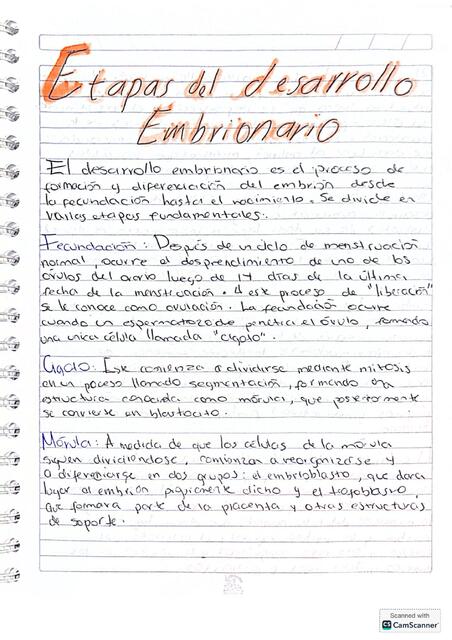 Etapas del desarrollo
Embrionario
El desarrollo embrionario es el proceso de
formación y diferenciación del embrión desde
la fecundación hasta el nacimiento. Se divide en
varias etapas fundamentales.
Fecundación: Después de un ciclo de menstruación
normal, ocurre el desprendimiento de uno de los
óvulos del ovario luego de 14 días de la última
fecha de la menstruación. A este proceso de "liberación"
se le conoce como ovulación. La fecundación ocurre
cuando un espermatozoide penetra el óvulo, formando
una unica célula llamada "cigoto".
Cigoto: Este comienza a dividirse mediante mitosis
en un proceso llamado segmentación, formando una
estructura conocida como mórula, que posteriormente
se convierte en blastocito.
Mórula: A medida de que las células de la mórula
siguen dividiendose, comienzan a reorganizarse y
a diferenciarse en dos grupos: el embrioblasto, que dara
lugar al embrión propiamente dicho y el trofoblasto,
que formara parte de la placenta y otras estructuras
de soporte.
Scanned with
CS CamScanner